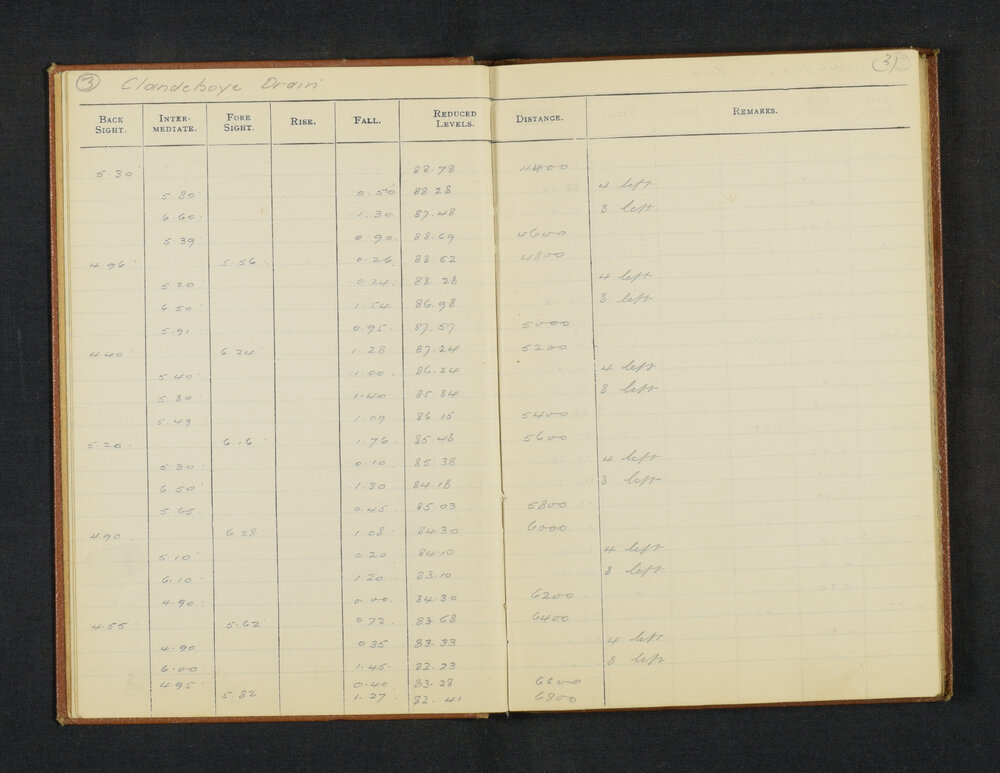 3 Clandeboye Drain
31
BACK SIGHT. INTER-MEDIATE. FORE SIGHT. RISE. FALL. REDUCED LEVELS. DISTANCE. REMARKS.
5.30 88.78 4400
5.80 0.50 88.28 4 left
6.60 1.30 87.48 8 left
5.39 0.90 88.69 4600
4.96 5.56 0.26 88.52 4800
5.20 0.24 88.28 4 left
6.50 1.54 86.98 8 left
5.91 0.95 87.57 5000
4.40 6.24 1.28 87.24 5200
5.40 1.00 86.24 4 left
5.80 1.40 85.84 8 left
5.49 1.09 86.15 5400
5.20 6.16 1.76 85.48 5600
5.30 0.10 85.38 4 left
6.50 1.30 84.18 8 left
5.65 0.45 85.03 5800
4.90 6.28 1.08 84.30 6000
5.10 0.20 84.10 4 left
6.10 1.20 83.10 8 left
4.90 0.00 84.30 6200
4.55 5.62 0.72 83.68 6400
4.90 0.35 83.33 4 left
6.00 1.45 82.23 8 left
4.95 0.40 83.28 6600
5.82 1.27 82.41 6800